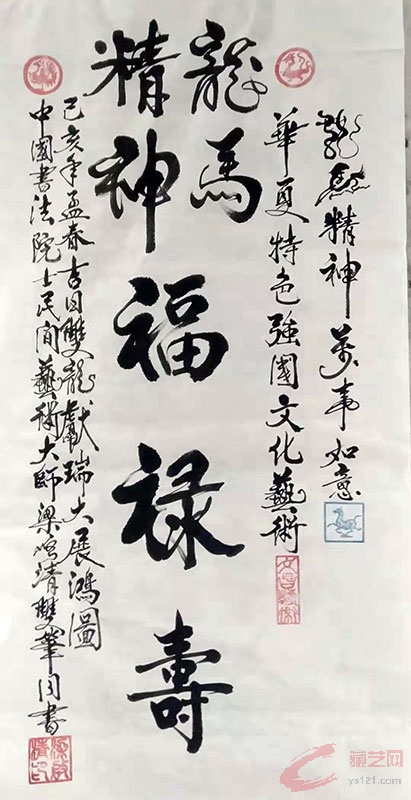 龍馬精神萬事如意
華夏特色強國文化藝術
龍馬
精神福禄壽
己亥年孟春吉日雙龍獻瑞大展鴻圖
中國書法院士民间藝術大師梁増清雙筆同書
藏艺网
ys121.com